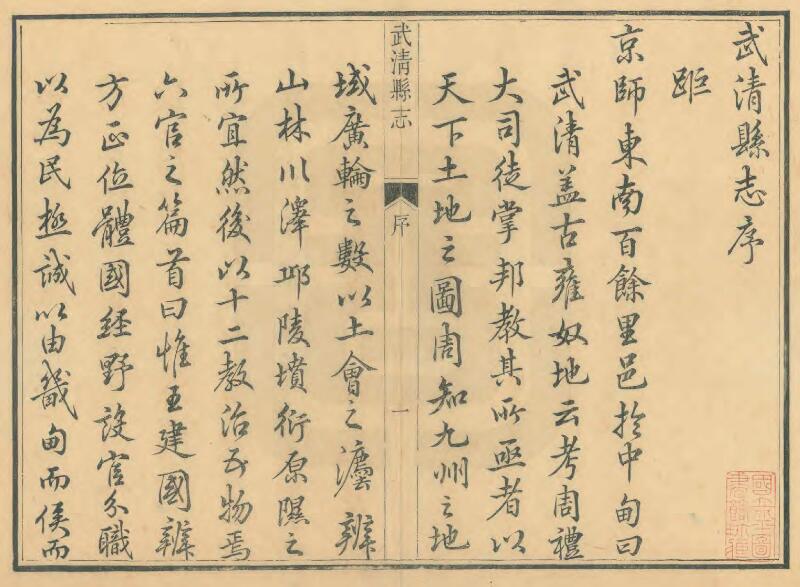 武清縣志序
距
京師東南百餘里邑於中甸曰
武清盖古雍奴地云考周禮
大司徒掌邦教其所亟者以
天下土地之圖周知九州之地
武清縣志
序
一
域廣輪之數以土會之灋辨
山林川澤邱陵墳衍原隰之
所宜然後以十二教治民物焉
六官之篇首曰惟王建國辨
方正位體國経野設官分職
以為民極誠以由畿甸而侯而